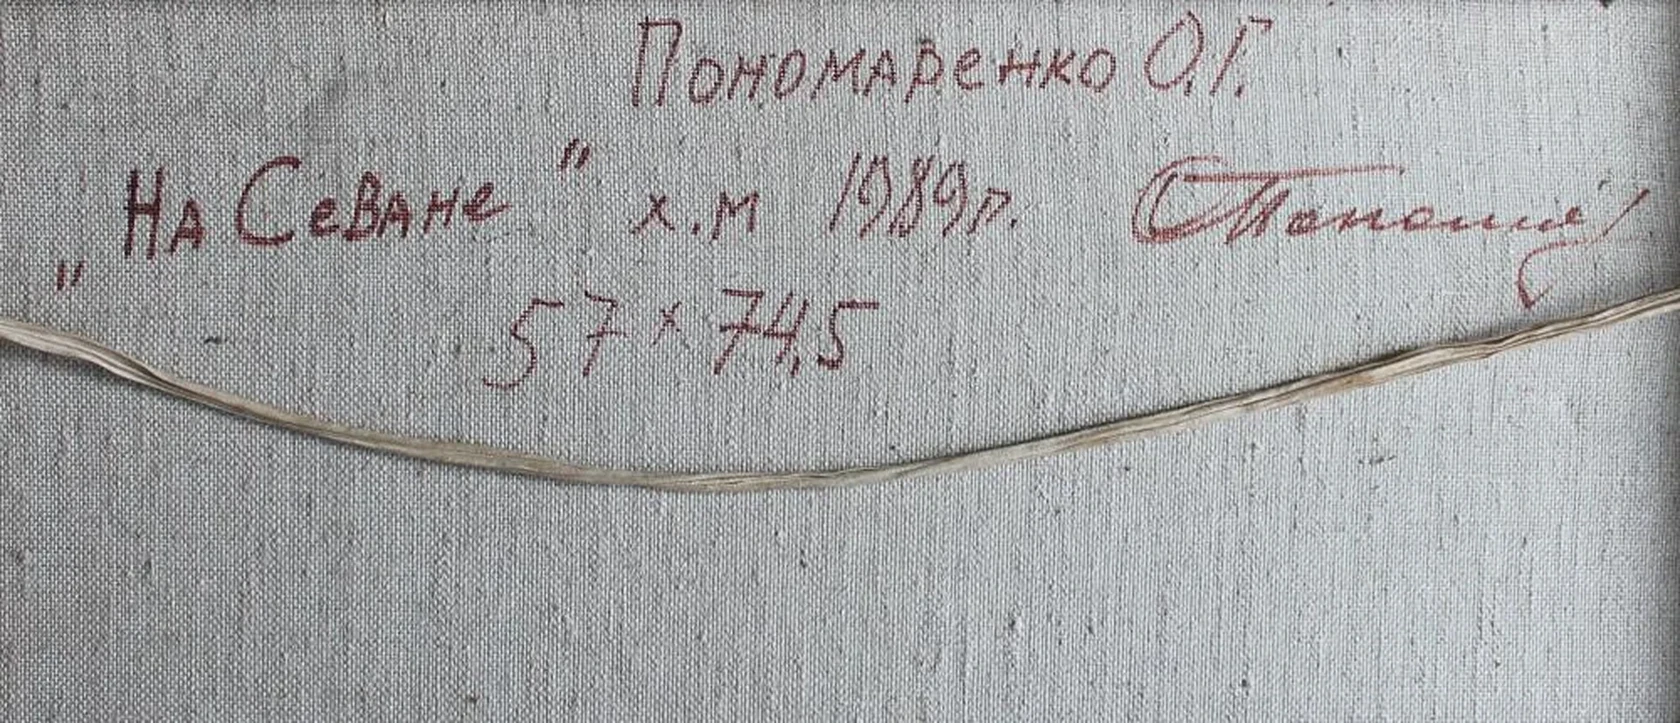 Пономаренко О.Г.
„На Севане" х.м 1989р.
57 x 74,5